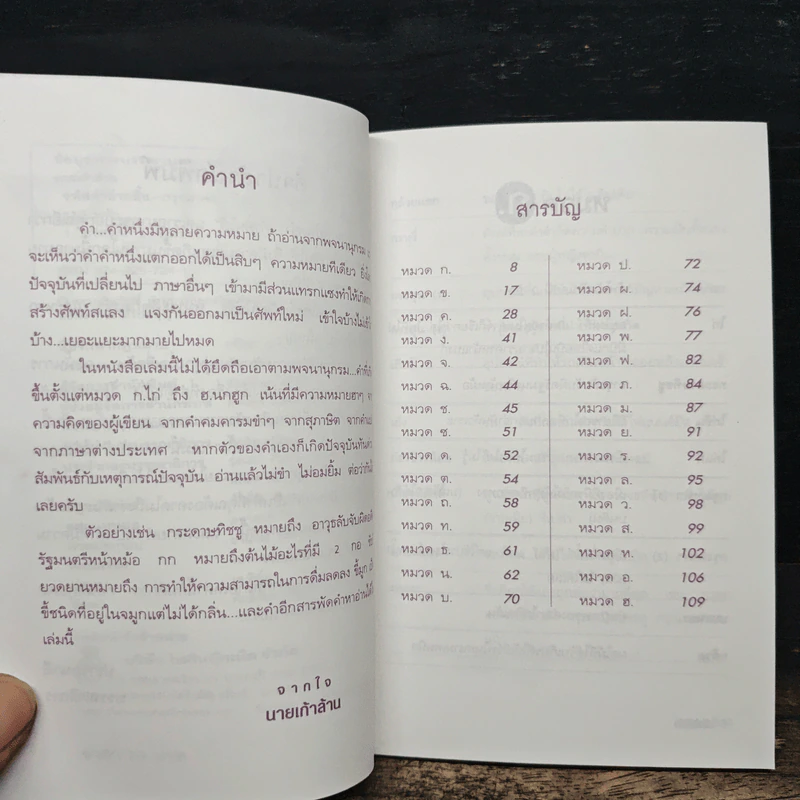 คำนำ
คำ...คำหนึ่งมีหลายความหมาย ถ้าอ่านจากพจนานุกรม
จะเห็นว่าคำคำหนึ่งแตกออกได้เป็นสิบๆ ความหมายทีเดียว
ปัจจุบันที่เปลี่ยนไป ภาษาอื่นๆ เข้ามามีส่วนแทรกแซงทำให้เกิด
สร้างศัพท์สแลง แจงกันออกมาเป็นศัพท์ใหม่ เข้าใจบ้างไม่
บ้าง...เยอะแยะมากมายไปหมด
ในหนังสือเล่มนี้ไม่ได้ยึดถือเอาตามพจนานุกรม...คำ
ขึ้นตั้งแต่หมวด ก.ไก่ ถึง ฮ.นกฮูก เน้นที่มีความหมายฮาๆ
ความคิดของผู้เขียน จากคำคมคารมขำๆ จากสุภาษิต
จากภาษาต่างประเทศ หากตัวของคำเองก็เกิดปัจจุบันทันด่วน
สัมพันธ์กับเหตุการณ์ปัจจุบัน อ่านแล้วไม่ขำ ไม่อมยิ้ม ต่อว่า
เลยครับ
ตัวอย่างเช่น กระดาษทิชชู หมายถึง อาวุธลับจับผิด
รัฐมนตรีหน้าหม้อ กก หมายถึงต้นไม้อะไรที่มี 2 กอ
ยวดยานหมายถึง การทำให้ความสามารถในการดื่มลดลง ขี้มูก
ขี้ชนิดที่อยู่ในจมูกแต่ไม่ได้กลิ่น...และคำอีกสารพัดคำหาอ่านได้
เล่มนี้
จากใจ
นายเก้าล้าน
สารบัญ
หมวด ก. 8
หมวด ข. 17
หมวด ค. 28
หมวด ง. 41
หมวด จ. 42
หมวด ฉ. 44
หมวด ช. 45
หมวด ซ. 51
หมวด ด. 52
หมวด ต. 54
หมวด ถ. 58
หมวด ท. 59
หมวด ธ. 61
หมวด น. 62
หมวด บ. 70
หมวด ป. 72
หมวด ผ. 74
หมวด ฝ. 76
หมวด พ. 77
หมวด ฟ. 82
หมวด ภ. 84
หมวด ม. 87
หมวด ย. 91
หมวด ร. 92
หมวด ล. 95
หมวด ว. 98
หมวด ส. 99
หมวด ห. 102
หมวด อ. 106
หมวด ฮ. 109